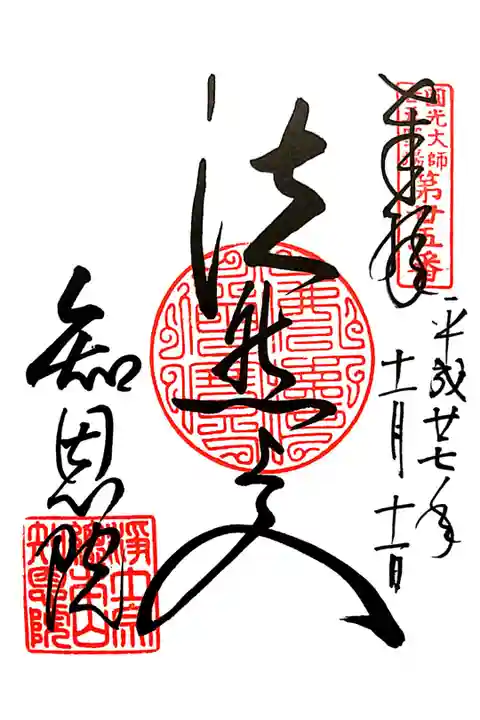 奉拝
圓光大師
第廿五番
平成廿七年
十一月十一日
法然上人
知恩院
淨土宗
總本山
知恩院